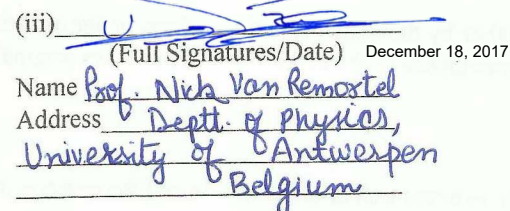 (iii)
(Full Signatures/Date) December 18, 2017
Name Prof. Nick Van Remortel
Address Deptt. of Physics,
University of Antwerpen
Belgium